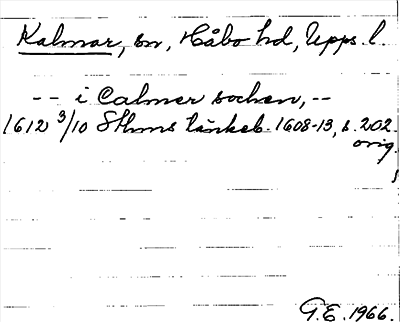 Kalmar, sn, Håbo hd, Upps. l.
-- i Calmer sochen, --
1612 3/10 Sthms tänkeb. 1608-13, s. 202.
orig.
G.E. 1966.